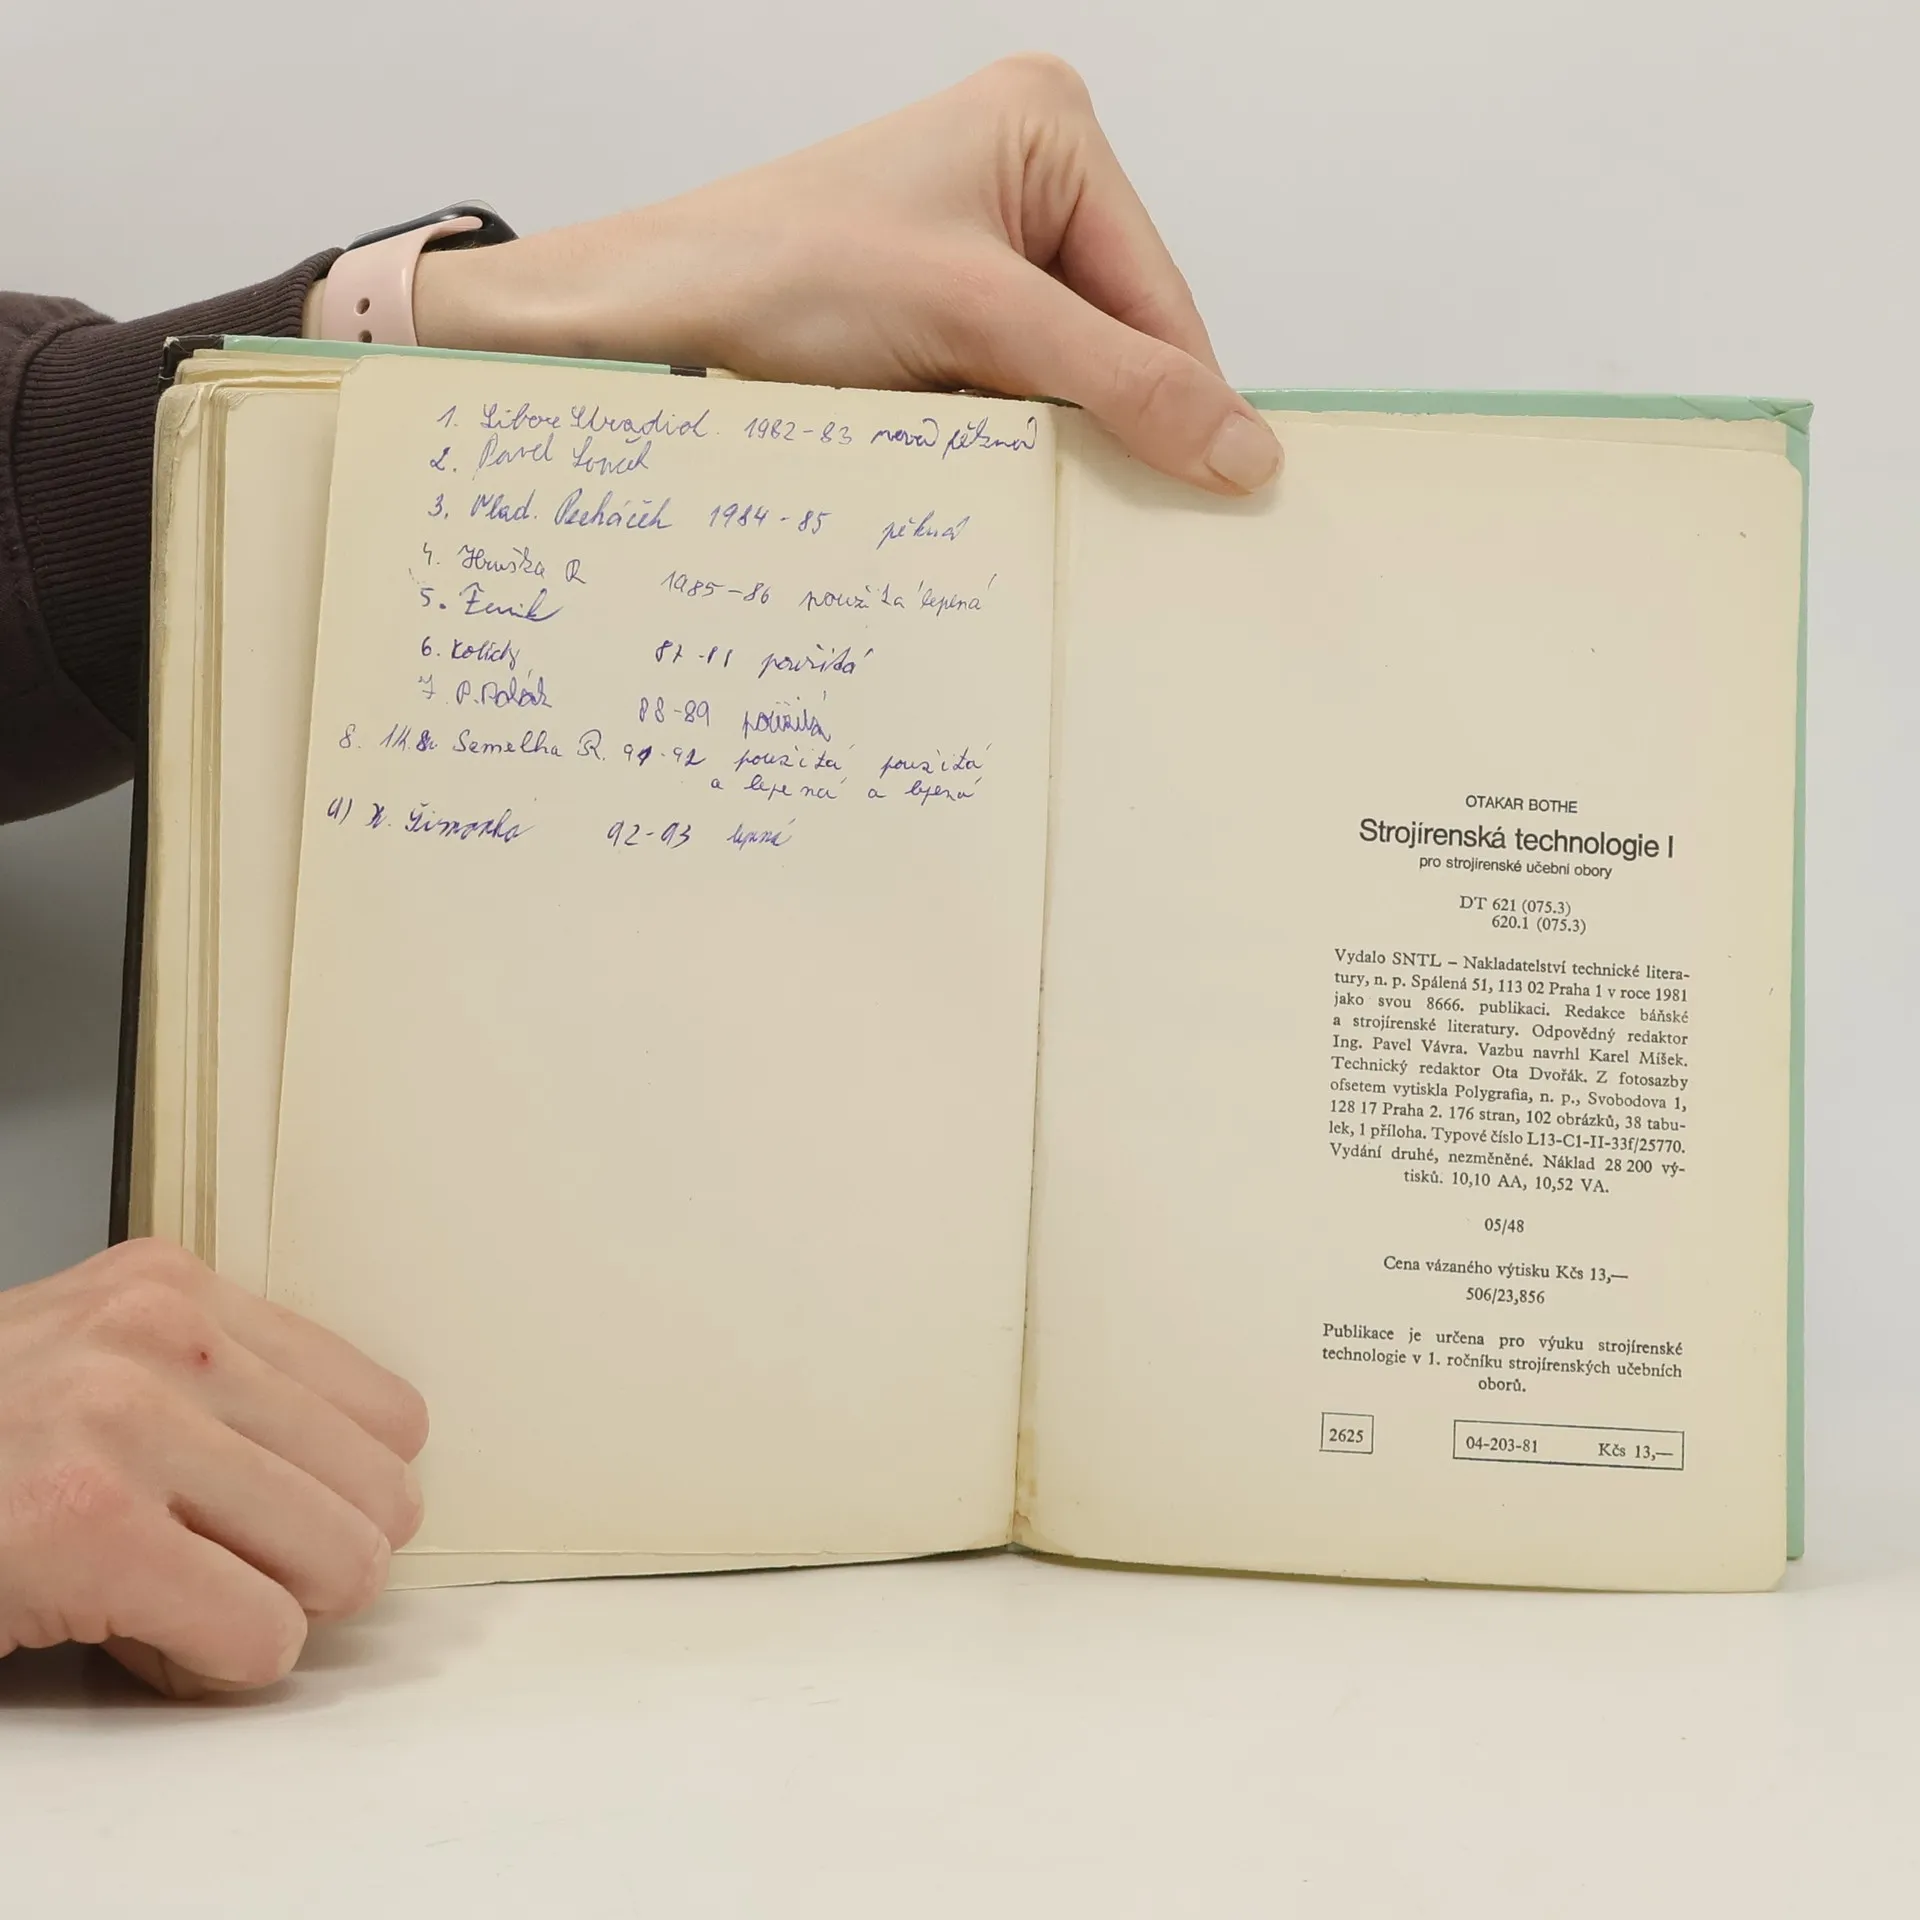 1. Libor 1982-83 nová pěkná
2. Pavel
3. Vlad. Pecháček 1984-85 pěkná
4. Hruška R 1985-86 použitá lepená
5. Ženík
6. 87-88 použitá
7 P. Polák 88-89 použitá
8. Semelka R. 91-92 použitá použitá
a lepená a lepená
9) K. Šimonka 92-93 lepená
OTAKAR BOTHE
Strojírenská technologie I
pro strojírenské učební obory
DT 621 (075.3)
620.1 (075.3)
Vydalo SNTL – Nakladatelství technické litera-
tury, n. p. Spálená 51, 113 02 Praha 1 v roce 1981
jako svou 8666. publikaci. Redakce báňské
a strojírenské literatury. Odpovědný redaktor
Ing. Pavel Vávra. Vazbu navrhl Karel Míšek.
Technický redaktor Ota Dvořák. Z fotosazby
ofsetem vytiskla Polygrafia, n. p., Svobodova 1,
128 17 Praha 2. 176 stran, 102 obrázků, 38 tabu-
lek, 1 příloha. Typové číslo L13-C1-II-33f/25770.
Vydání druhé, nezměněné. Náklad 28 200 vý-
tisků. 10,10 AA, 10,52 VA.
05/48
Cena vázaného výtisku Kčs 13,—
506/23,856
Publikace je určena pro výuku strojírenské
technologie v 1. ročníku strojírenských učebních
oborů.
2625 04-203-81 Kčs 13,—